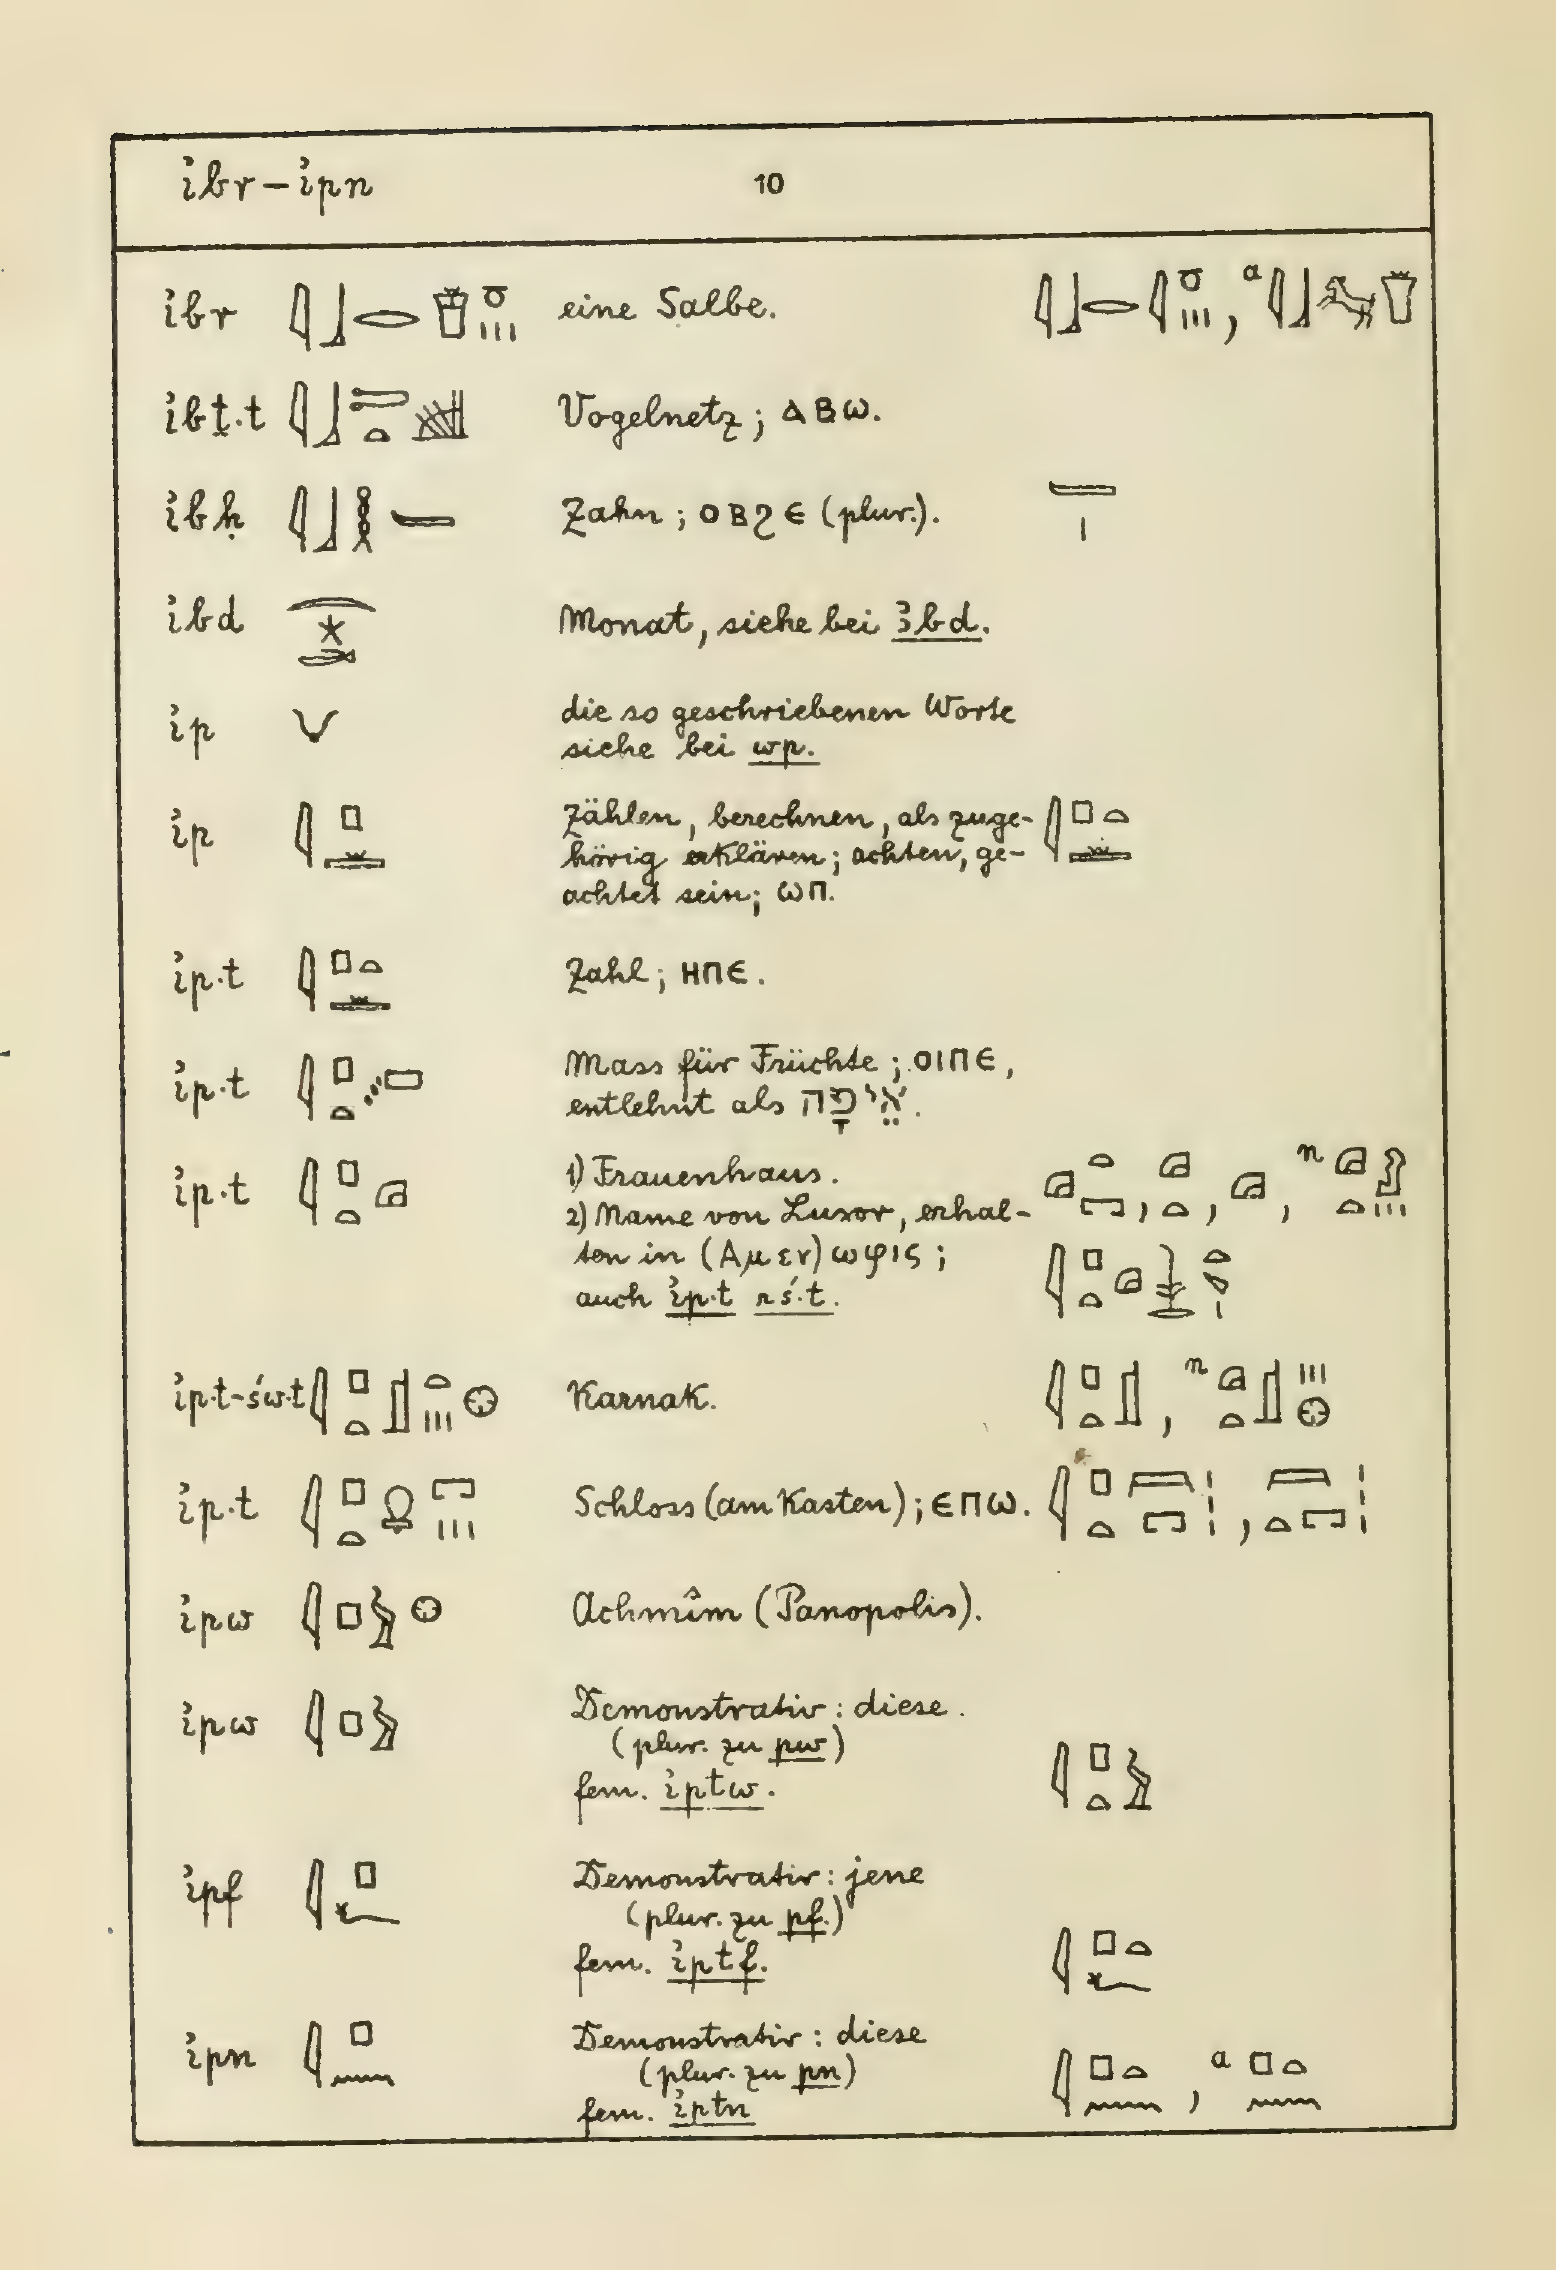 ı͗br – ı͗pn 10
ı͗br 𓇋𓃀𓂋 eine Salbe.
ı͗bṯ·t 𓇋𓃀𓍿𓏏 Vogelnetz; ⲁⲃⲱ.
ı͗bḥ 𓇋𓃀𓎛𓄑 Zahn; ⲟⲃϩⲉ (plur.). 𓄑𓏤
ı͗bd 𓇹𓇼 Monat, siehe bei ꜣbd.
ı͗p 𓄋 die so geschriebenen Worte
siehe bei wp.
ı͗p 𓇋𓊪𓏛 Zählen, berechnen, als zuge-
hörig erklären; achten, ge-
achtet sein; ⲱⲡ.
ı͗p·t 𓇋𓊪𓏏𓏛 Zahl; ⲏⲡⲉ.
ı͗p·t 𓇋𓊪𓏏 Mass für Früchte; ⲟⲓⲡⲉ,
entlehnt als אֵיפָה.
ı͗p·t 𓇋𓊪𓏏 1) Frauenhaus.
2) Name von Luxor, erhal-
ten in (Αμεν)ωφις;
auch ı͗p·t rś·t.
ı͗p·t-św·t 𓇋𓊪𓏏𓊨𓏏𓏥𓊖 Karnak.
ı͗p·t 𓇋𓊪𓏏 Schloss (am Kasten); ⲉⲡⲱ.
ı͗pw 𓇋𓊪𓅱𓊖 Achmîm (Panopolis).
ı͗pw 𓇋𓊪𓅱 Demonstrativ: diese.
(plur. zu pw)
fem. ı͗ptw. 𓇋𓊪𓏏𓅱
ı͗pf 𓇋𓊪𓆑 Demonstrativ: jene
(plur. zu pf.)
fem. ı͗ptf. 𓇋𓊪𓏏𓆑
ı͗pn 𓇋𓊪𓈖 Demonstrativ: diese
(plur. zu pn)
fem. ı͗ptn 𓇋𓊪𓏏𓈖, a 𓊪𓏏𓈖